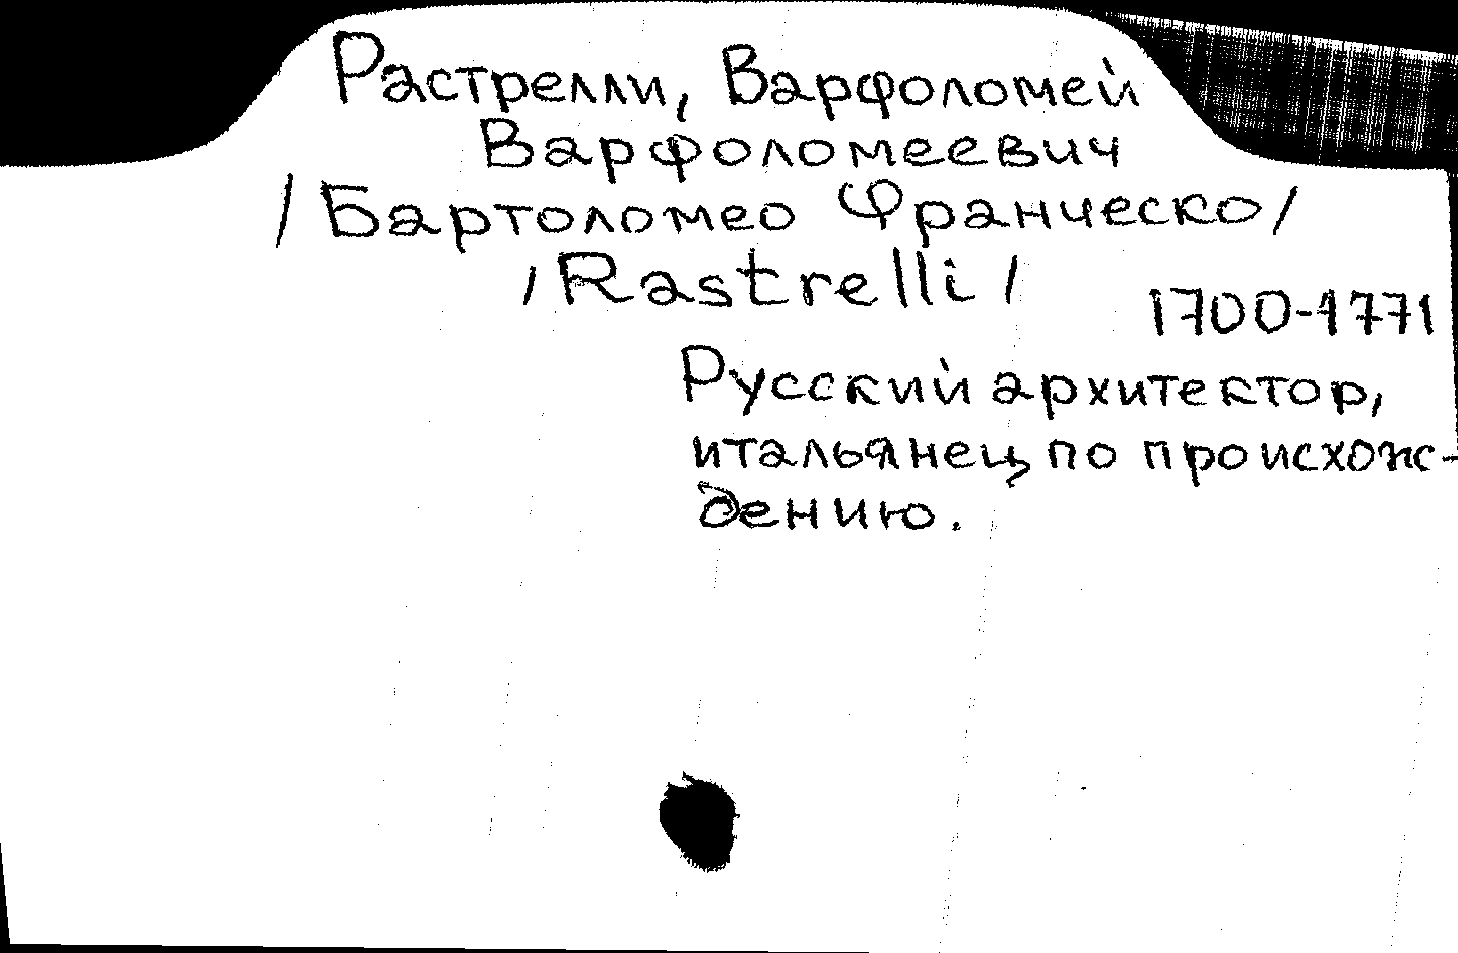 Растрелли, Варфоломей
Варфоломеевич
/Бартоломео Франческо/
/Rastrelli/
1700-1771
Русский архитектор,
итальянец по происхож-
дению.